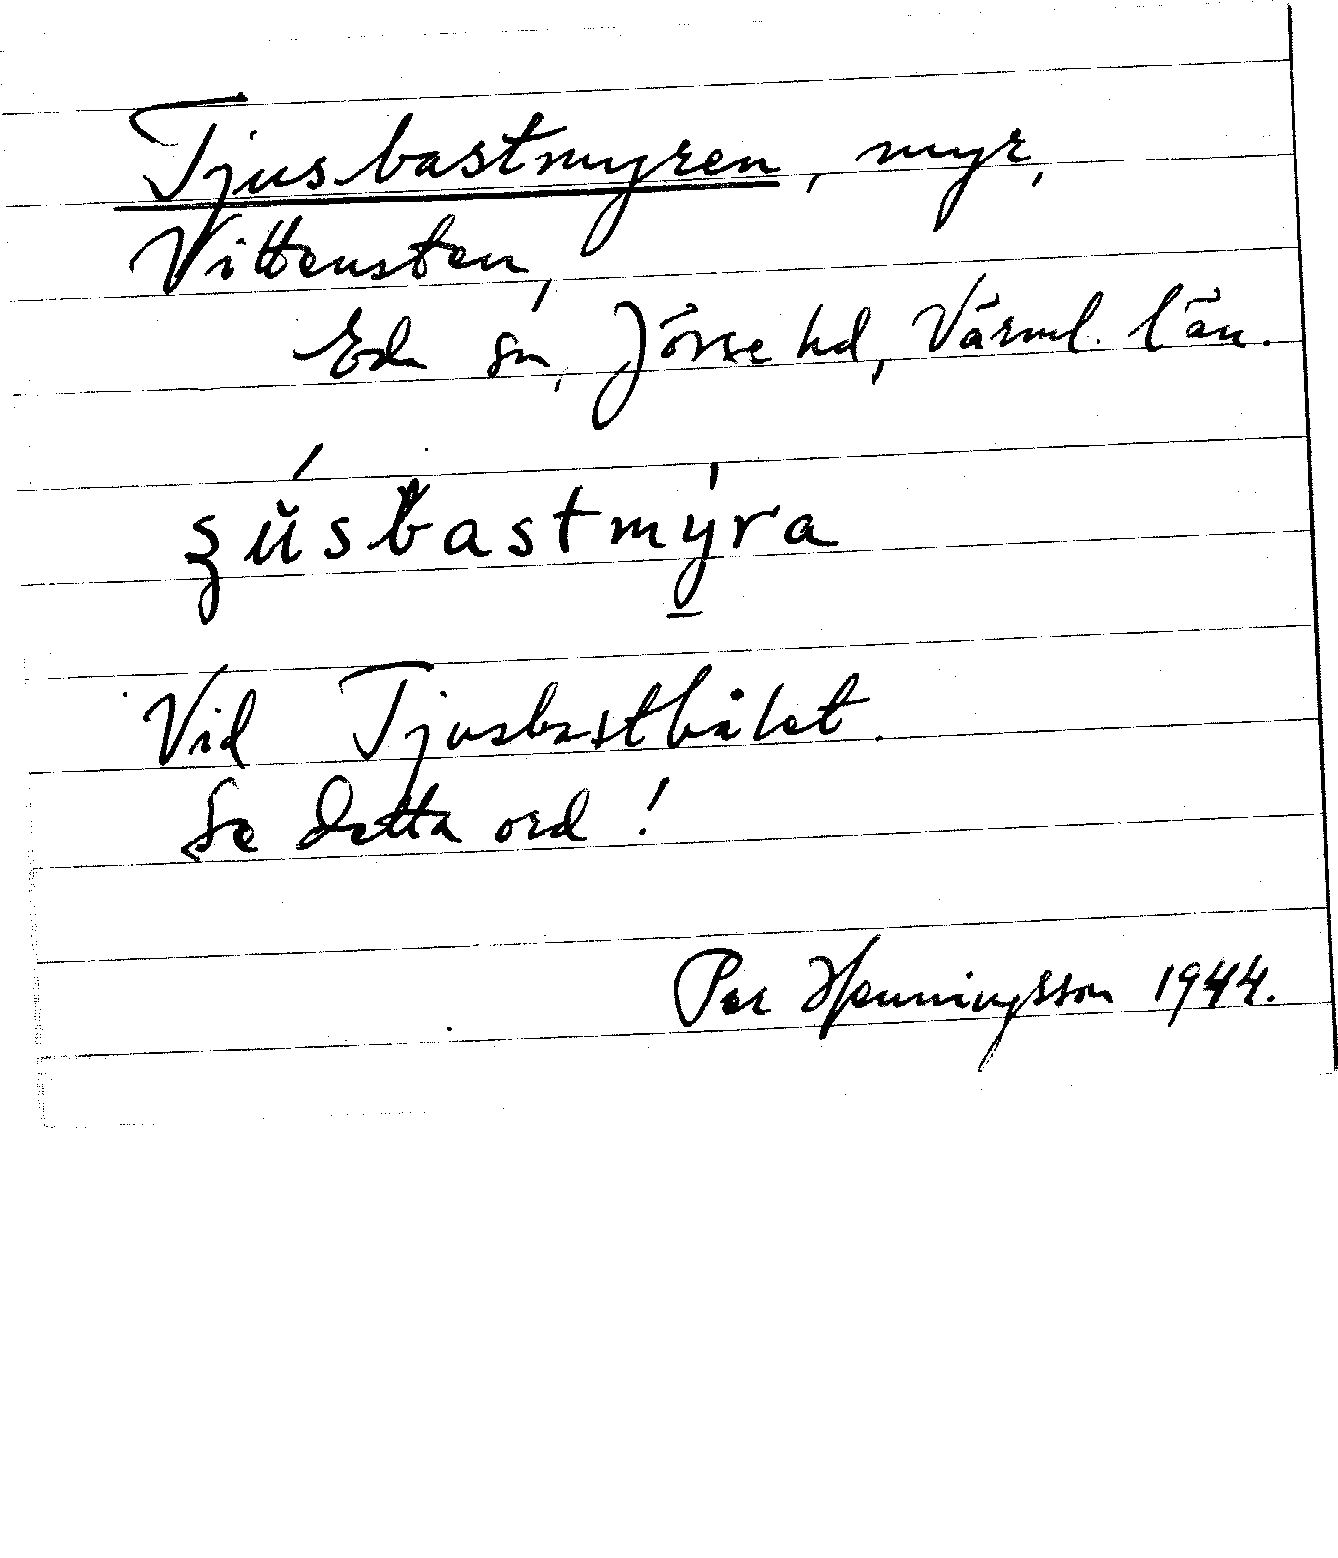 Tjusbastmyren, myr,
Vittensten,
Eda sn, Jösse hd, Värml. län.
ʒúsbastmy̠̍ra
Vid Tjusbastbålet.
Se detta ord!
Per Henningsson 1944.